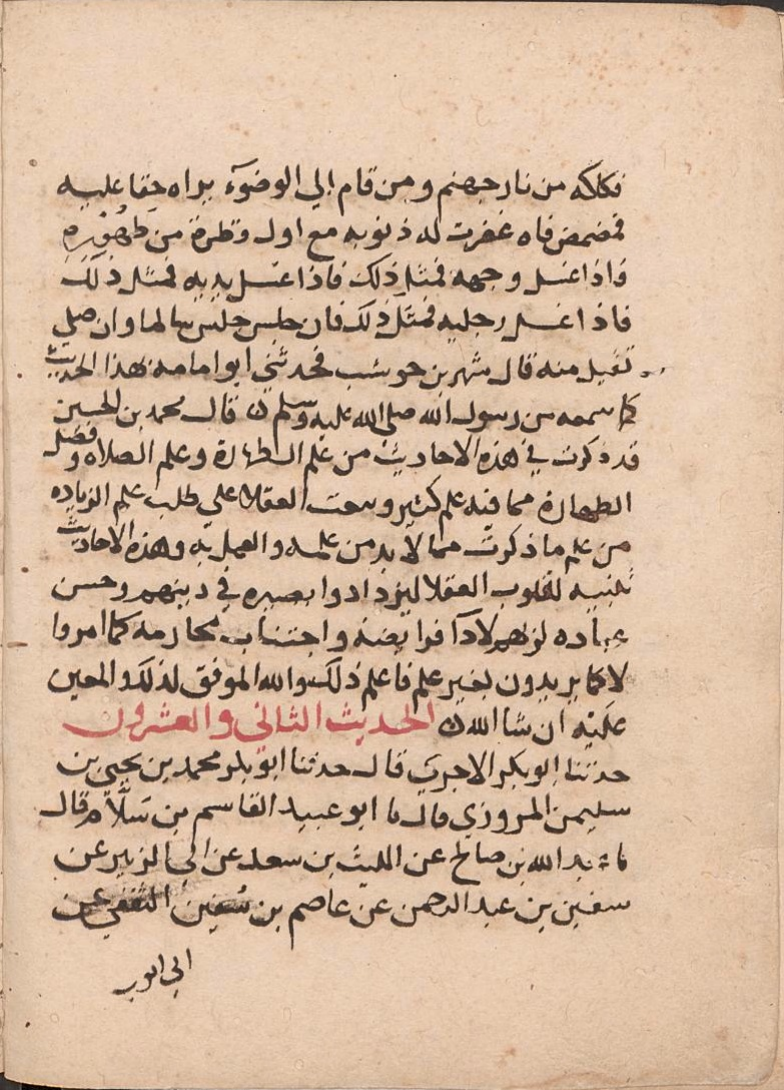 فكاكه من نار جهنم ومن قام الي الوضوء يراه حقا عليه
فمضمض فاه غفرت له ذنوبه مع اول قطرة من طهوره
فاذا غسل وجهه فمثل ذلك فاذا غسل يديه فمثل ذلك
فاذا غسل رجليه فمثل ذلك فان جلس جلس سالما وان صلي
تقبل منه قال شهر بن حوشب فحدثني ابو امامه بهذا الحديث
كما سمعه من رسول الله صلي الله عليه وسلم ن قال محمد بن الحسين
قد ذكرت في هذه الاحاديث من علم الطهارة وعلم الصلاه وفضل
الطهارة مما فيه علم كثير وبعث العقلا علي طلب علم الزياده
من علم ما ذكرت مما لا بد من علمه والعمل به وهذه الاحاديث
تنبيه لقلوب العقلا ليزدادوا بصيره في دينهم وحسن
عباده لربهم لادآ فرايضه واجتناب محارمه كما امروا
لا كما يريدون بغير علم فاعلم ذلك والله الموفق لذلك والمعين
عليه ان شا الله ن الحديث الثاني والعشرون
حدثنا ابو بكر الاجري قال حدثنا ابو بكر محمد بن يحيي بن
سليمن المروزي قال نا ابو عبيد القاسم بن سلام قال
نا عبد الله بن صالح عن الليث بن سعد عن ابي الزبير عن
سفين بن عبد الرحمن عن عاصم بن سفين الثقفي عن
ابي ايوب